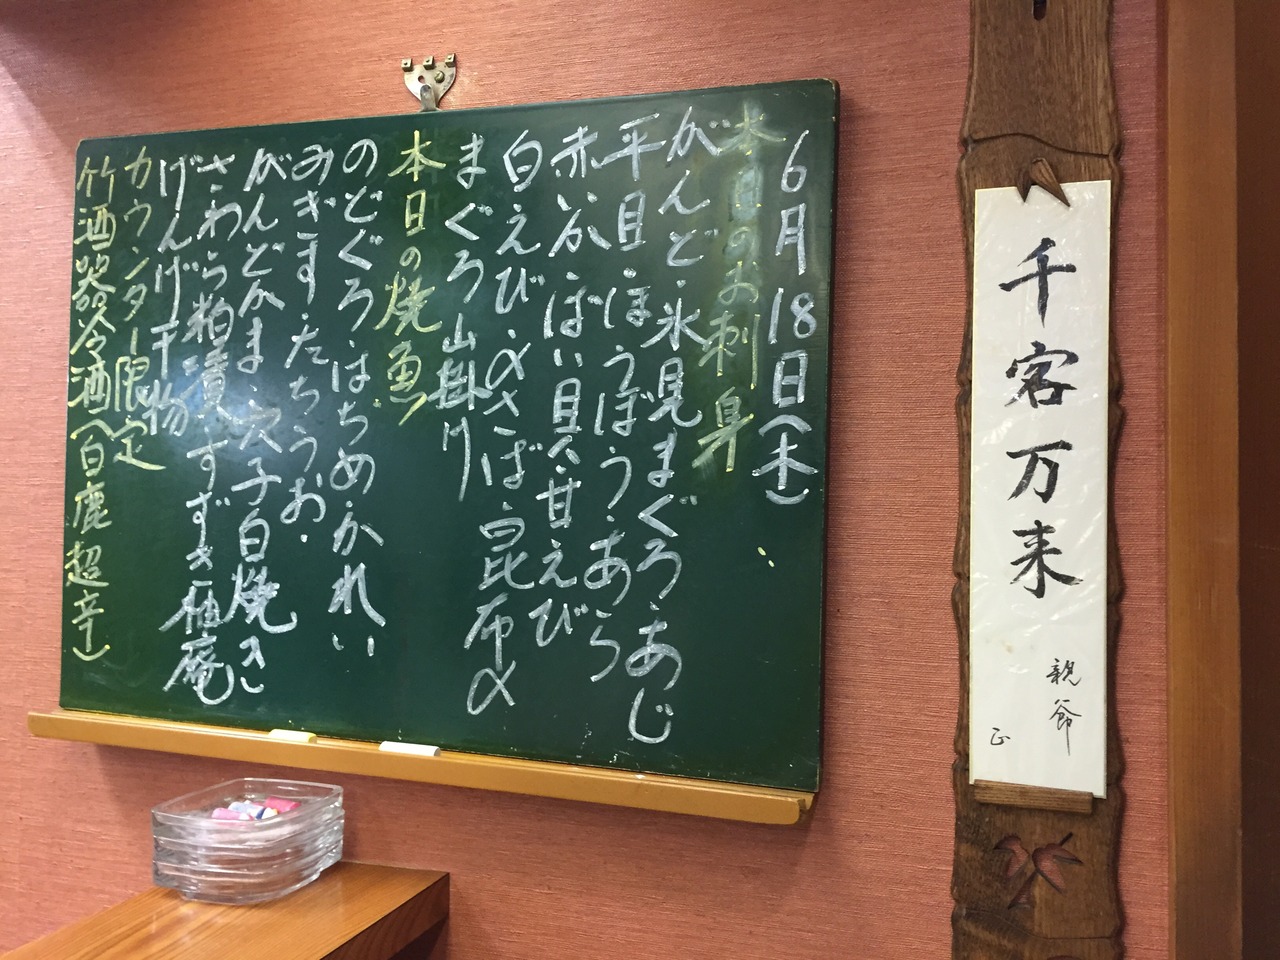 6月18日(木)
本日のお刺身
がんど・氷見まぐろ・あじ
平目・ほうぼう・あら
赤いか・ばい貝・甘えび
白えび・〆さば・昆布〆
まぐろ山掛け
本日の焼魚
のどぐろ・はちめ・かれい
みぎす・たちうお・
がんどかま・穴子白焼き
さわら粕漬・すずき柚庵
げんげ干物
カウンター限定
竹酒器冷酒(白鹿超辛)
千客万来
親爺
正